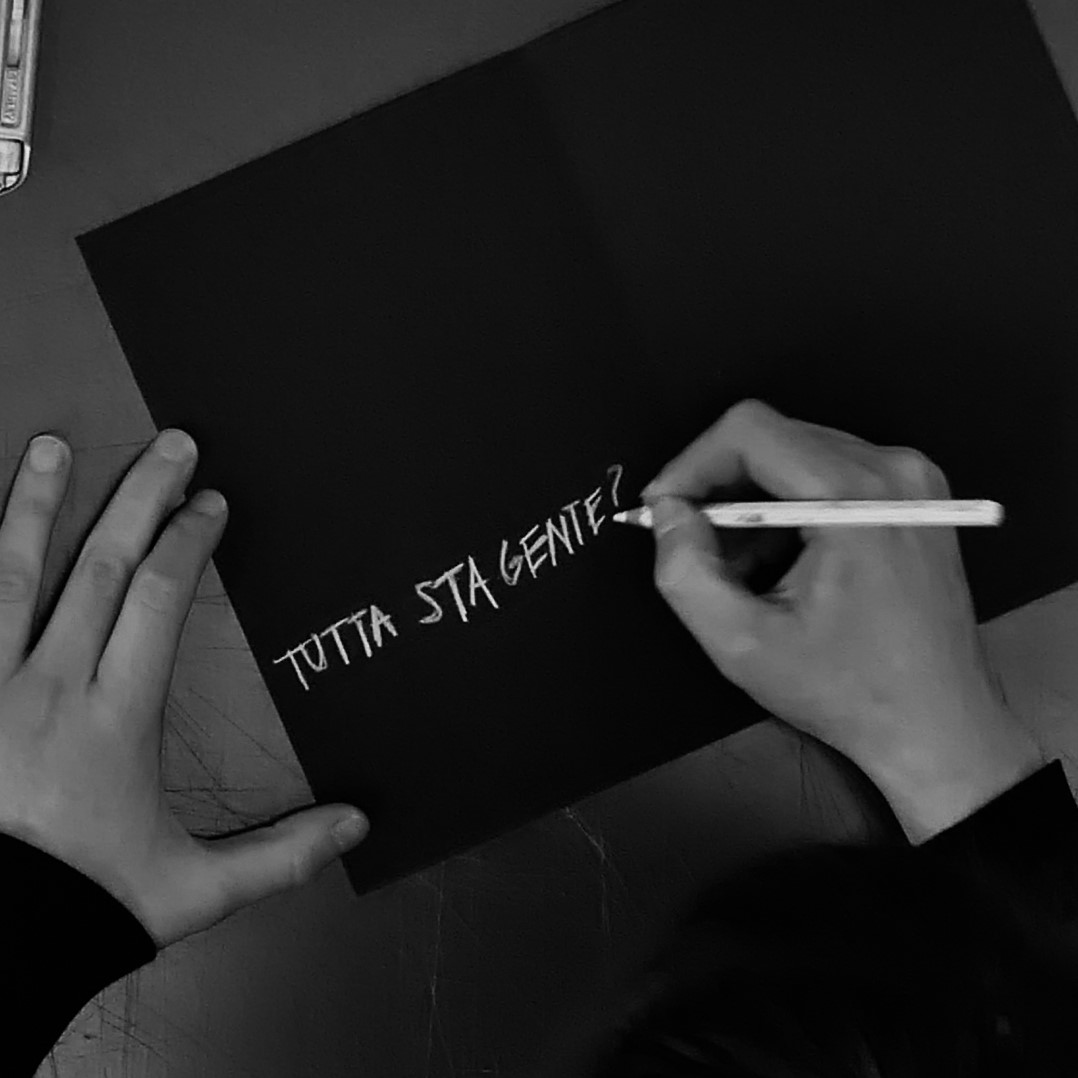 TUTTA STA GENTE?